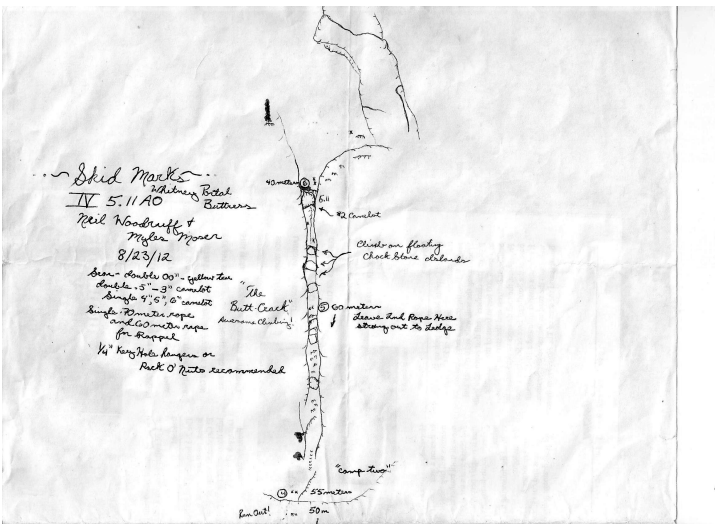 Skid Marks
Whitney Portal
Buttress
IV 5.11 A0
Neil Woodruff &
Myles Moser
8/23/12
Gear - double 00" - yellow
double .5" - 3" camelot
Single 4", 5", 6" camelot
Single - 70 meter rope
and 60 meter rope
for Rappel
1/4" Key Hole hangers or
Rack O' Nuts recommended
40 meters 6
5.11
#2 Camelot
Climb on floating
Chock Stone islands
"The
Butt-Crack"
Awesome Climbing!
5 60 meters
Leave 2nd Rope Here
strung out to Ledge
"camp two"
4 55 meters
Run Out!
50 m